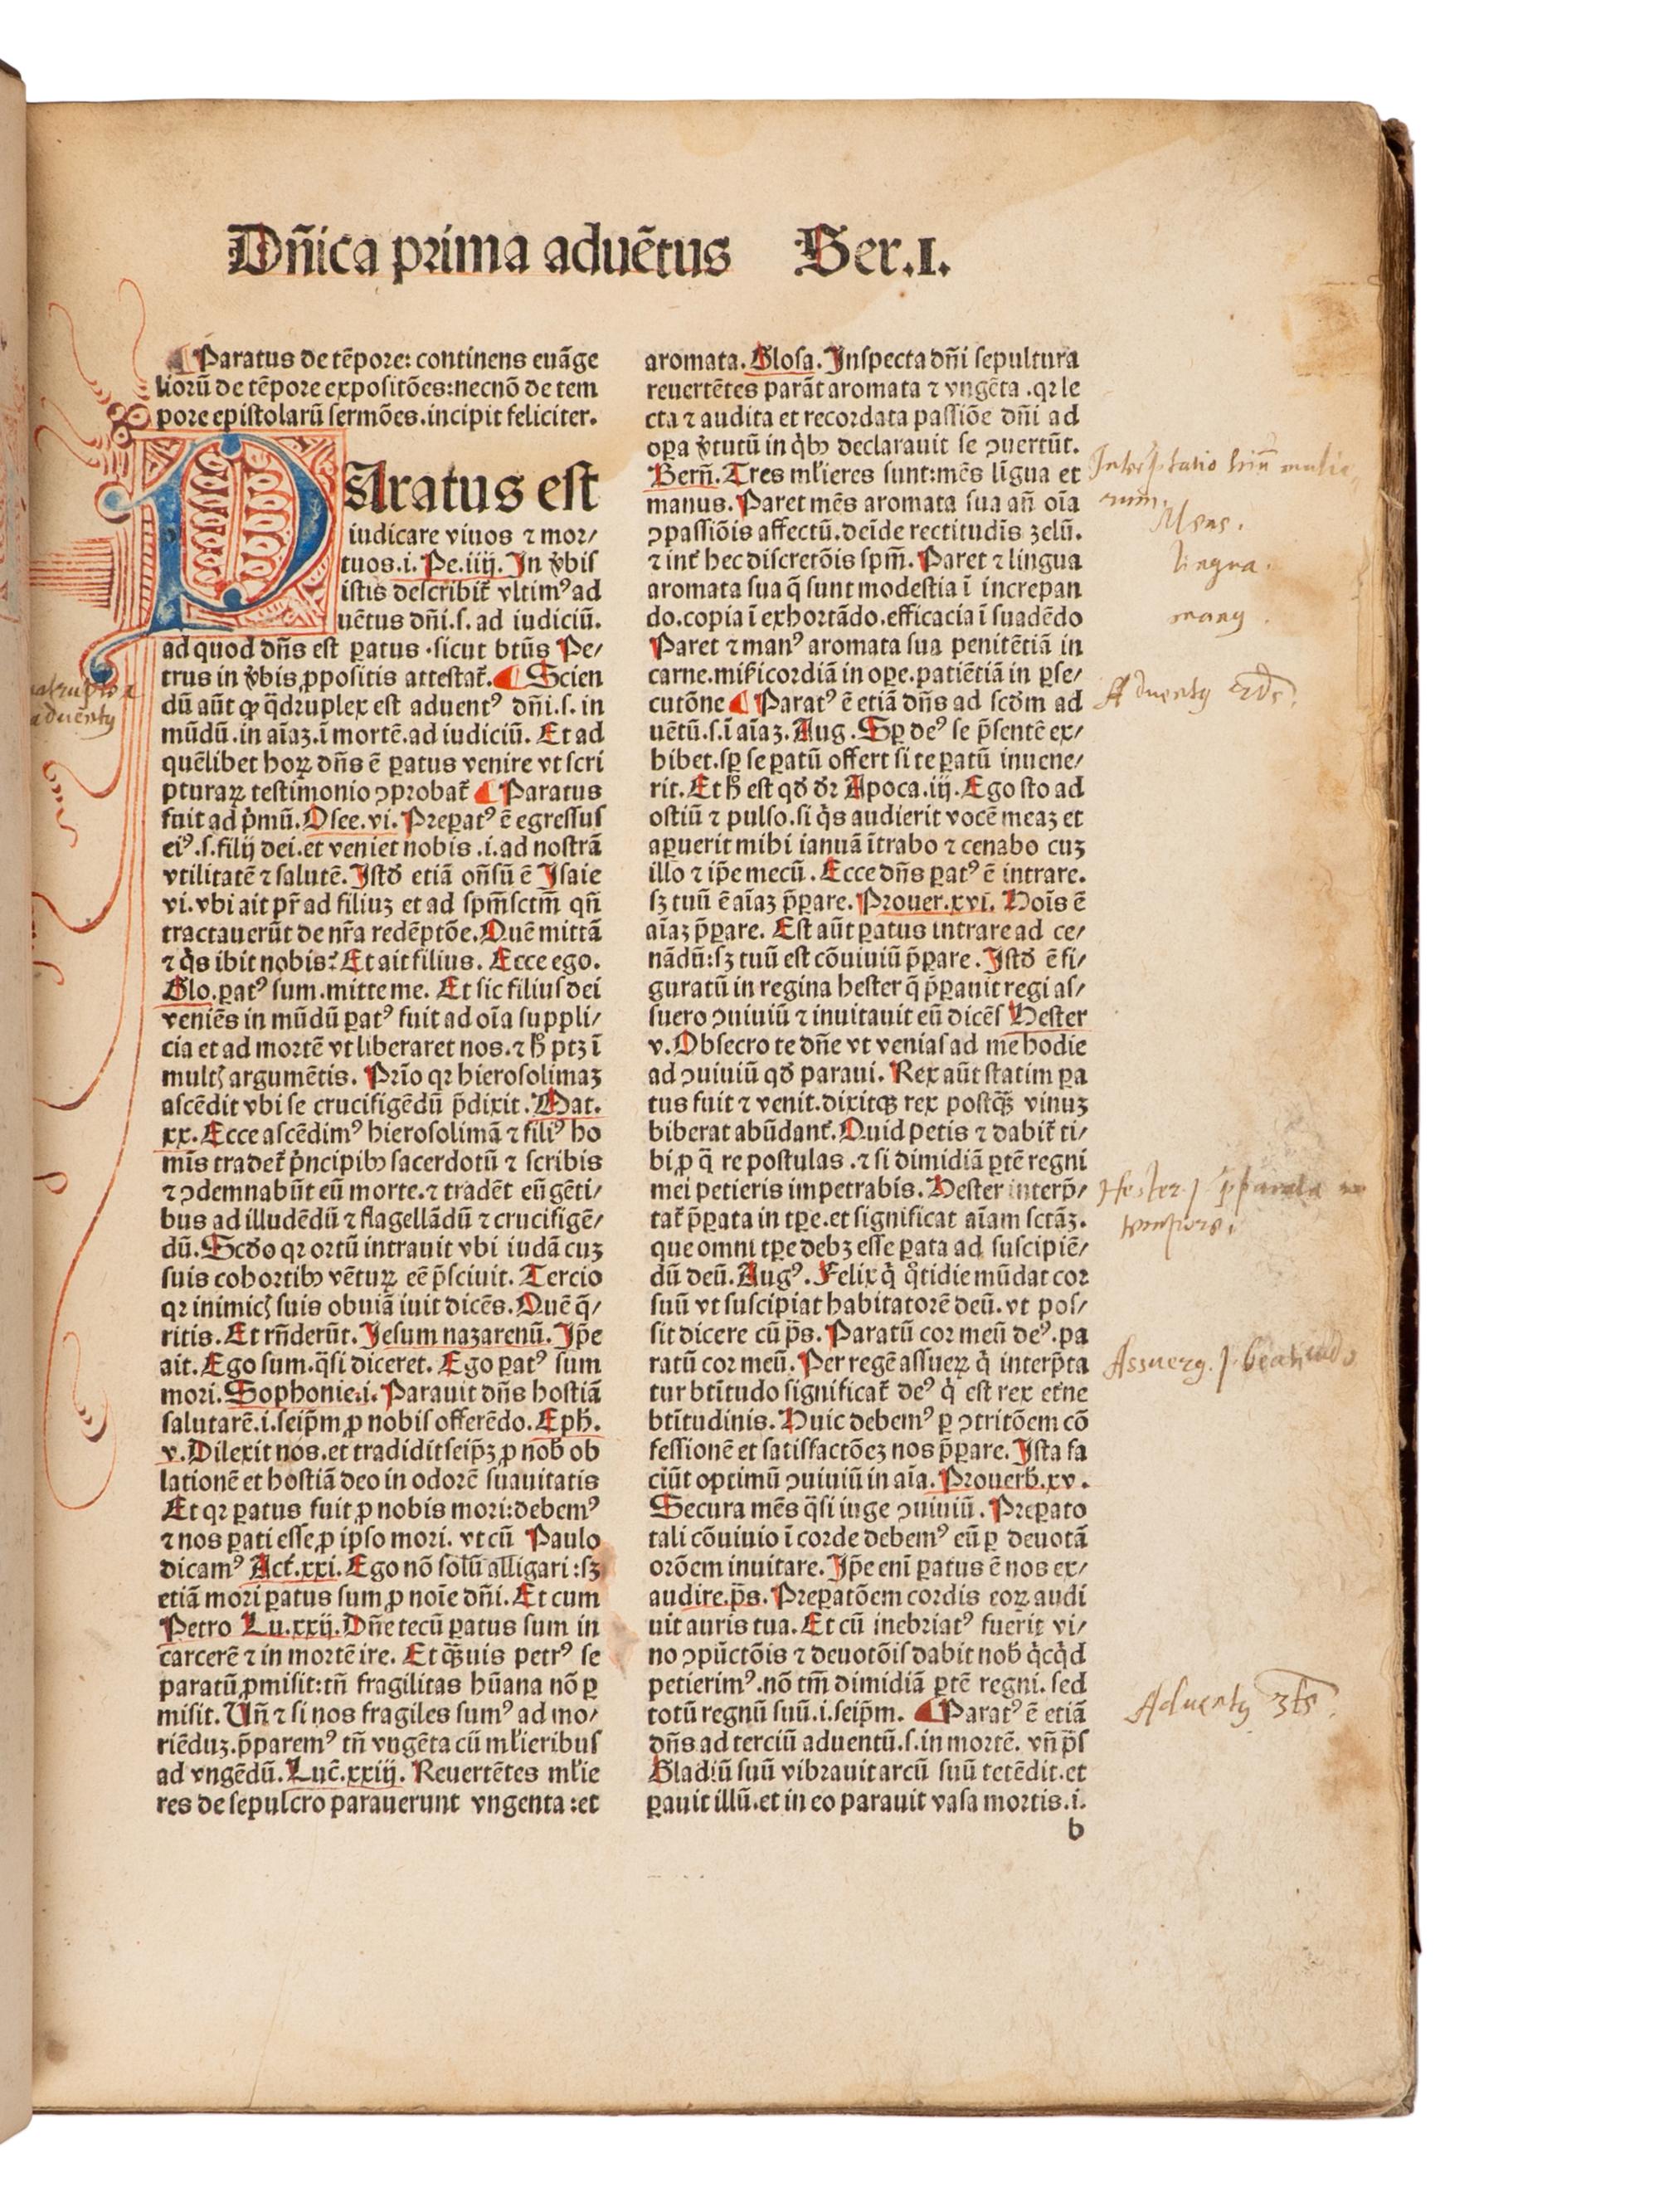 Dñica prima aduẽtus Ser.I.
¶ Paratus de tẽpore: continens euãge
liorũ de tẽpore expositões: necnõ de tem
pore epistolarũ sermões. incipit feliciter.
PAratus est
iudicare viuos ⁊ mor/
tuos. i. Pe. iiij. In v̾bis
istis describit̃ vltimꝰ ad
uẽtus dñi. s. ad iudiciũ.
ad quod dñs est ꝑatus. sicut btũs Pe/
trus in v̾bis ꝓpositis attestat̃. ¶ Scien
dũ aũt ꝙ q̃druplex est aduentꝰ dñi. s. in
mũdũ. in aĩaꝫ. ĩ mortẽ. ad iudiciũ. Et ad
quẽlibet hoꝝ dñs ẽ ꝑatus venire vt scri
pturaꝝ testimonio ꝯprobat̃ ¶ Paratus
fuit ad p̃mũ. Osee. vi. Preꝑatꝰ ẽ egressus
eiꝰ. s. filij dei. et veniet nobis. i. ad nostrã
vtilitatẽ ⁊ salutẽ. Istđ etiã oñsũ ẽ Isaie
vi. vbi ait pr̃ ad filiuꝫ et ad spm̃sctm̃ qñ
tractauerũt de nr̃a redẽptõe. Quẽ mittã
⁊ q̇s ibit nobis? Et ait filius. Ecce ego.
Glo. ꝑatꝰ sum. mitte me. Et sic filius dei
veniẽs in mũdũ ꝑatꝰ fuit ad oĩa suppli/
cia et ad mortẽ vt liberaret nos. ⁊ ꝧ ptꝫ ĩ
multꝭ argumẽtis. Prĩo qꝛ hierosolimaꝫ
ascẽdit vbi se crucifigẽdũ p̃dixit. Mat.
xx. Ecce ascẽdimꝰ hierosolimã ⁊ filiꝰ ho
mĩs tradet̃ p̃ncipibꝰ sacerdotũ ⁊ scribis
⁊ ꝯdemnabũt eũ morte. ⁊ tradẽt eũ gẽti/
bus ad illudẽdũ ⁊ flagellãdũ ⁊ crucifigẽ/
dũ. Scđo qꝛ ortũ intrauit vbi iudã cuꝫ
suis cohortibꝰ vẽtuꝝ eẽ p̃sciuit. Tercio
qꝛ inimicꝭ suis obuiã iuit dicẽs. Quẽ q̃/
ritis. Et rñderũt. Jesum nazarenũ. Ip̃e
ait. Ego sum. q̃si diceret. Ego ꝑatꝰ sum
mori. Sophonie. i. Parauit dñs hostiã
salutarẽ. i. seip̃m ꝓ nobis offerẽdo. Eph̃.
v. Dilexit nos. et tradidit seip̃ꝫ ꝓ nob̃ ob
lationẽ et hostiã deo in odorẽ suauitatis
Et qꝛ ꝑatus fuit ꝓ nobis mori: debemꝰ
⁊ nos ꝑati esse ꝓ ipso mori. vt cũ Paulo
dicamꝰ Act̃. xxi. Ego nõ solũ alligari: sꝫ
etiã mori ꝑatus sum ꝓ noĩe dñi. Et cum
Petro Lu. xxij. Dñe tecũ ꝑatus sum in
carcerẽ ⁊ in mortẽ ire. Et q̃uis petrꝰ se
paratũ ꝓmisit: tñ fragilitas hũana nõ ꝑ
misit. Uñ ⁊ si nos fragiles sumꝰ ad mo/
riẽduꝫ. p̃ꝑemꝰ tñ vngẽta cũ ml̃ieribus
ad vngẽdũ. Luc̃. xxiij. Reuertẽtes ml̃ie
res de sepulcro parauerunt vngenta: et
aromata. Glosa. Inspecta dñi sepultura
reuertẽtes parãt aromata ⁊ vngẽta. qꝛ le
cta ⁊ audita et recordata passiõe dñi ad
oꝑa v̾tutũ in q̇bꝰ declarauit se ꝯuertũt.
Berñ. Tres ml̃ieres sunt: mẽs lĩgua et
manus. Paret mẽs aromata sua añ oĩa
ꝯpassiõis affectũ. deĩde rectitudĩs zelũ.
⁊ int̃ hec discretõis spm̃. Paret ⁊ lingua
aromata sua q̃ sunt modestia ĩ increpan
do. copia ĩ exhortãdo. efficacia ĩ suadẽdo
Paret ⁊ manꝰ aromata sua penitẽtiã in
carne. mĩsicordiã in oꝑe. patiẽtiã in ꝑse/
cutõne ¶ Paratꝰ ẽ etiã dñs ad scđm ad
uẽtũ. s. ĩ aĩaꝫ. Aug. Sꝑ deꝰ se p̃sentẽ ex/
hibet. sꝑ se ꝑatũ offert si te ꝑatũ inuene/
rit. Et ꝧ est qđ dꝛ Apoca. iij. Ego sto ad
ostiũ ⁊ pulso. si q̇s audierit vocẽ meaꝫ et
aꝑuerit mihi ianuã ĩtrabo ⁊ cenabo cuꝫ
illo ⁊ ip̃e mecũ. Ecce dñs ꝑatꝰ ẽ intrare.
sꝫ tuũ ẽ aĩaꝫ p̃ꝑare. Prouer. xvi. Hoĩs ẽ
aĩaꝫ p̃ꝑare. Est aũt ꝑatus intrare ad ce/
nãdũ: sꝫ tuũ est cõuiuiũ p̃ꝑare. Istđ ẽ fi/
guratũ in regina hester q̃ p̃ꝑauit regi as/
suero ꝯuiuiũ ⁊ inuitauit eũ dicẽs Hester
v. Obsecro te dñe vt venias ad me hodie
ad ꝯuiuiũ qđ paraui. Rex aũt statim ꝑa
tus fuit ⁊ venit. dixitqꝫ rex postq̃ꝫ vinuꝫ
biberat abũdant̃. Quid petis ⁊ dabit̃ ti/
bi ꝓ q̃ re postulas. ⁊ si dimidiã ꝑtẽ regni
mei petieris impetrabis. Hester interp̃/
tat̃ p̃ꝑata in tꝑe. et significat aĩam sctãꝫ.
que omni tꝑe debꝫ esse ꝑata ad suscipiẽ/
dũ deũ. Augꝰ. Felix q̇ q̊tidie mũdat cor
suũ vt suscipiat habitatorẽ deũ. vt pos/
sit dicere cũ p̃s. Paratũ cor meũ deꝰ. pa
ratũ cor meũ. Per regẽ assueꝝ q̇ interp̃ta
tur btĩtudo significat̃ deꝰ q̇ est rex et̃ne
btĩtudinis. Huic debemꝰ ꝑ ꝯtritõem cõ
fessionẽ et satisfactõeꝫ nos p̃ꝑare. Ista fa
ciũt optimũ ꝯuiuiũ in aĩa. Prouerb̃. xv.
Secura mẽs q̃si iuge ꝯuiuiũ. Preꝑato
tali cõuiuio ĩ corde debemꝰ eũ ꝑ deuotã
orõem inuitare. Ip̃e enĩ ꝑatus ẽ nos ex/
audire. p̃s. Preꝑatõem cordis eoꝝ audi
uit auris tua. Et cũ inebriatꝰ fuerit vi/
no ꝯpũctõis ⁊ deuotõis dabit nob̃ q̇cq̇d
petierimꝰ. nõ tm̃ dimidiã ꝑtẽ regni. sed
totũ regnũ suũ. i. seip̃m. ¶ Paratꝰ ẽ etiã
dñs ad terciũ aduentũ. s. in mortẽ. vñ p̃s
Gladiũ suũ vibrauit arcũ suũ tetẽdit. et
ꝑauit illũ. et in eo parauit vasa mortis. i.
b
aduentꝰ
Mens.
lingua.
manꝰ.
Aduentꝰ 2ds.
Hester
temꝑore.
Assuerꝰ.
Aduentꝰ 3ts.